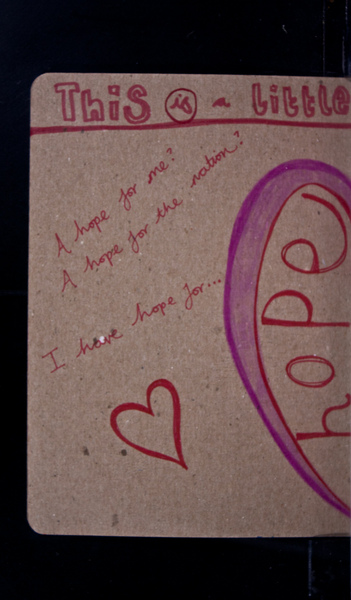 This is a little
A hope for me?
A hope for the nation?
I have hope for...
hope